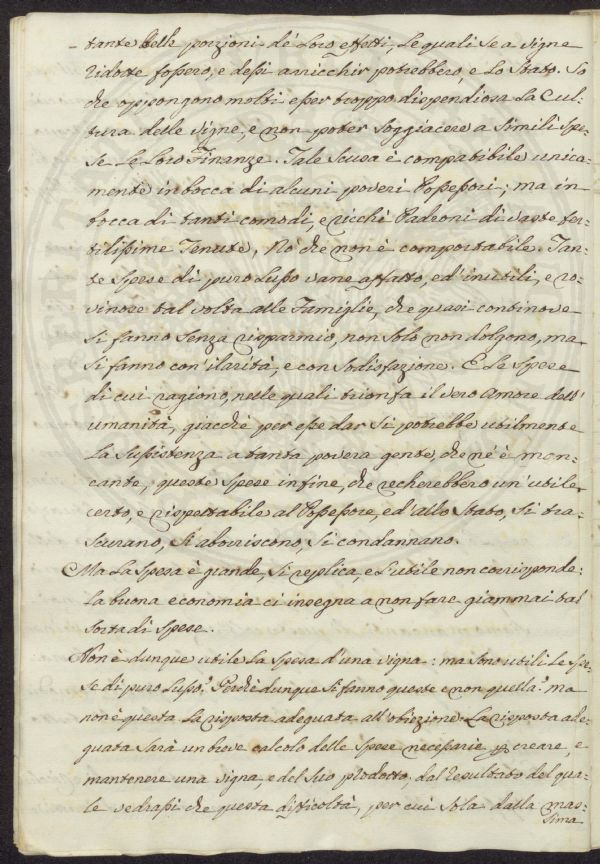 -tante delle porzioni de' Loro effetti, Le quali se a Vigne
ridotte fossero, e dessi arricchir potrebbero, e Lo Stato. So
che oppongono molti esser troppo dispendiosa La Cul-
tura delle Vigne, e non poter Soggiacere a Simili Spe-
se Le Loro Finanze. Tale Scusa è compatibile unica-
mente in bocca di alcuni poveri Possessori; ma in
bocca di tanti comodi, e ricchi Padroni di vaste fer-
tilissime Tenute, Nò che non è comportabile. Tan-
te Spese di puro Lusso vane affatto, ed' inutili, e ro-
vinose tal volta alle Famiglie, che quasi continove
Si fanno Senza risparmio, non Solo non dolgono, ma
Si fanno con ilarità, e con Sodisfazione. E Le Spese
di cui ragiono, nelle quali trionfa il vero Amore dell'
umanità, giacchè per esse dar Si potrebbe utilmente
La Sussistenza a tanta povera gente, che né è man-
cante; queste Spese infine, che recherebbero un' utile
certo, e rispettabile al Possessore, ed' allo Stato, Si tra-
scurano, Si aboriscono, Si condannano.
Ma La Spesa è grande, Si replica, e L'utile non corrisponde:
La buona economia ci insegna a non fare giammai tal
Sorta di Spese.
Non è dunque utile La Spesa d'una Vigna: ma Sono utili Le Spe-
se di puro Lusso? Perchè dunque Si fanno queste e non quella? ma
non è questa La risposta adeguata all'obiezione. La risposta ade-
guata Sarà un breve calcolo delle Spese necessarie per creare, e
mantenere una Vigna, e del Suo prodotto, dal Resultato del qua-
le vedrassi che questa difficoltà, per cui Sola dalla mas-
sima